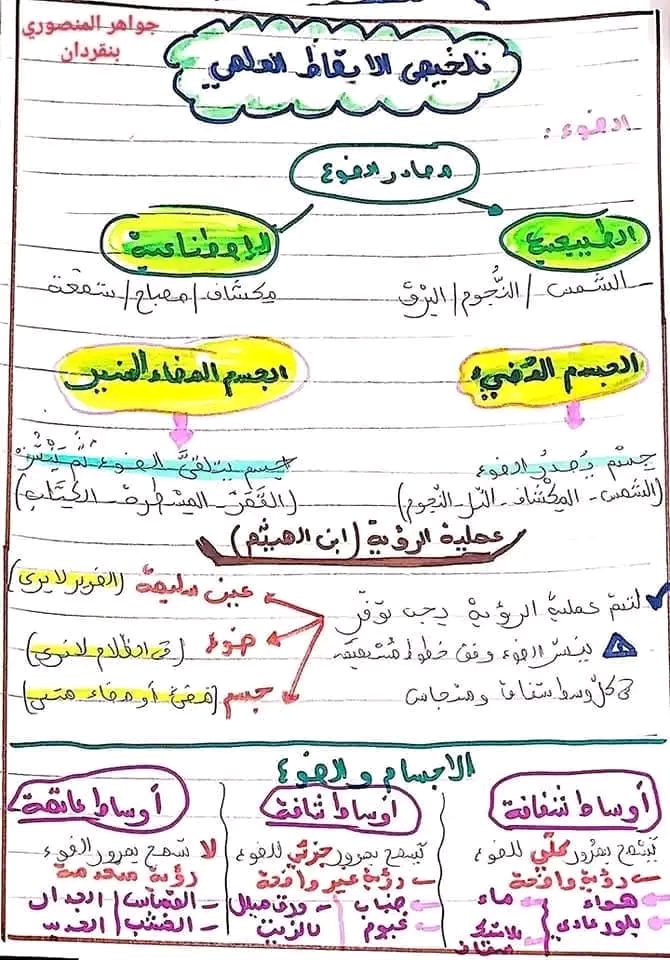 جواهر المنصوري
بنقردان
تلخيص الايقاظ العلمي
الضوء :
مصادر الضوء
الطبيعية
الاصطناعية
الشمس / النّجوم / البرق
مكشاف / مصباح / شمعة
الجسم المُضيء
الجسم المضاء المنير
جسم يُصدرُ الضوء
جسم يتلقّى الضوء ثمّ يَنْشُرُ
(الشمس - المكشاف - النّجوم)
(القمَر - المسطرة - الكتاب)
عملية الرؤية (ابن الهيثم)
لتتم عملية الرؤية يجب توفّر
عين سليمة (الضرير لا يرى)
ضوء (في الظلام لا نرى)
جسم (مضيء أو مضاء)
ينتشر الضوء وفق خطوط مستقيمة
في كلّ وسط شفاف و متجانس
الأجسام و الضوء
أوساط شفافة
أوساط شافة
أوساط عاتمة
تسمح بمرور كلّي للضوء
رؤية واضحة
هواء
ماء
بلور عادي
بلاستيك شفاف
تسمح بمرور جزئي للضوء
رؤية غير واضحة
ضباب
ورق مبلل بالزيت
غيوم
لا تسمح بمرور الضوء
رؤية منعدمة
القماش
الجدار
الخشب
الحديد